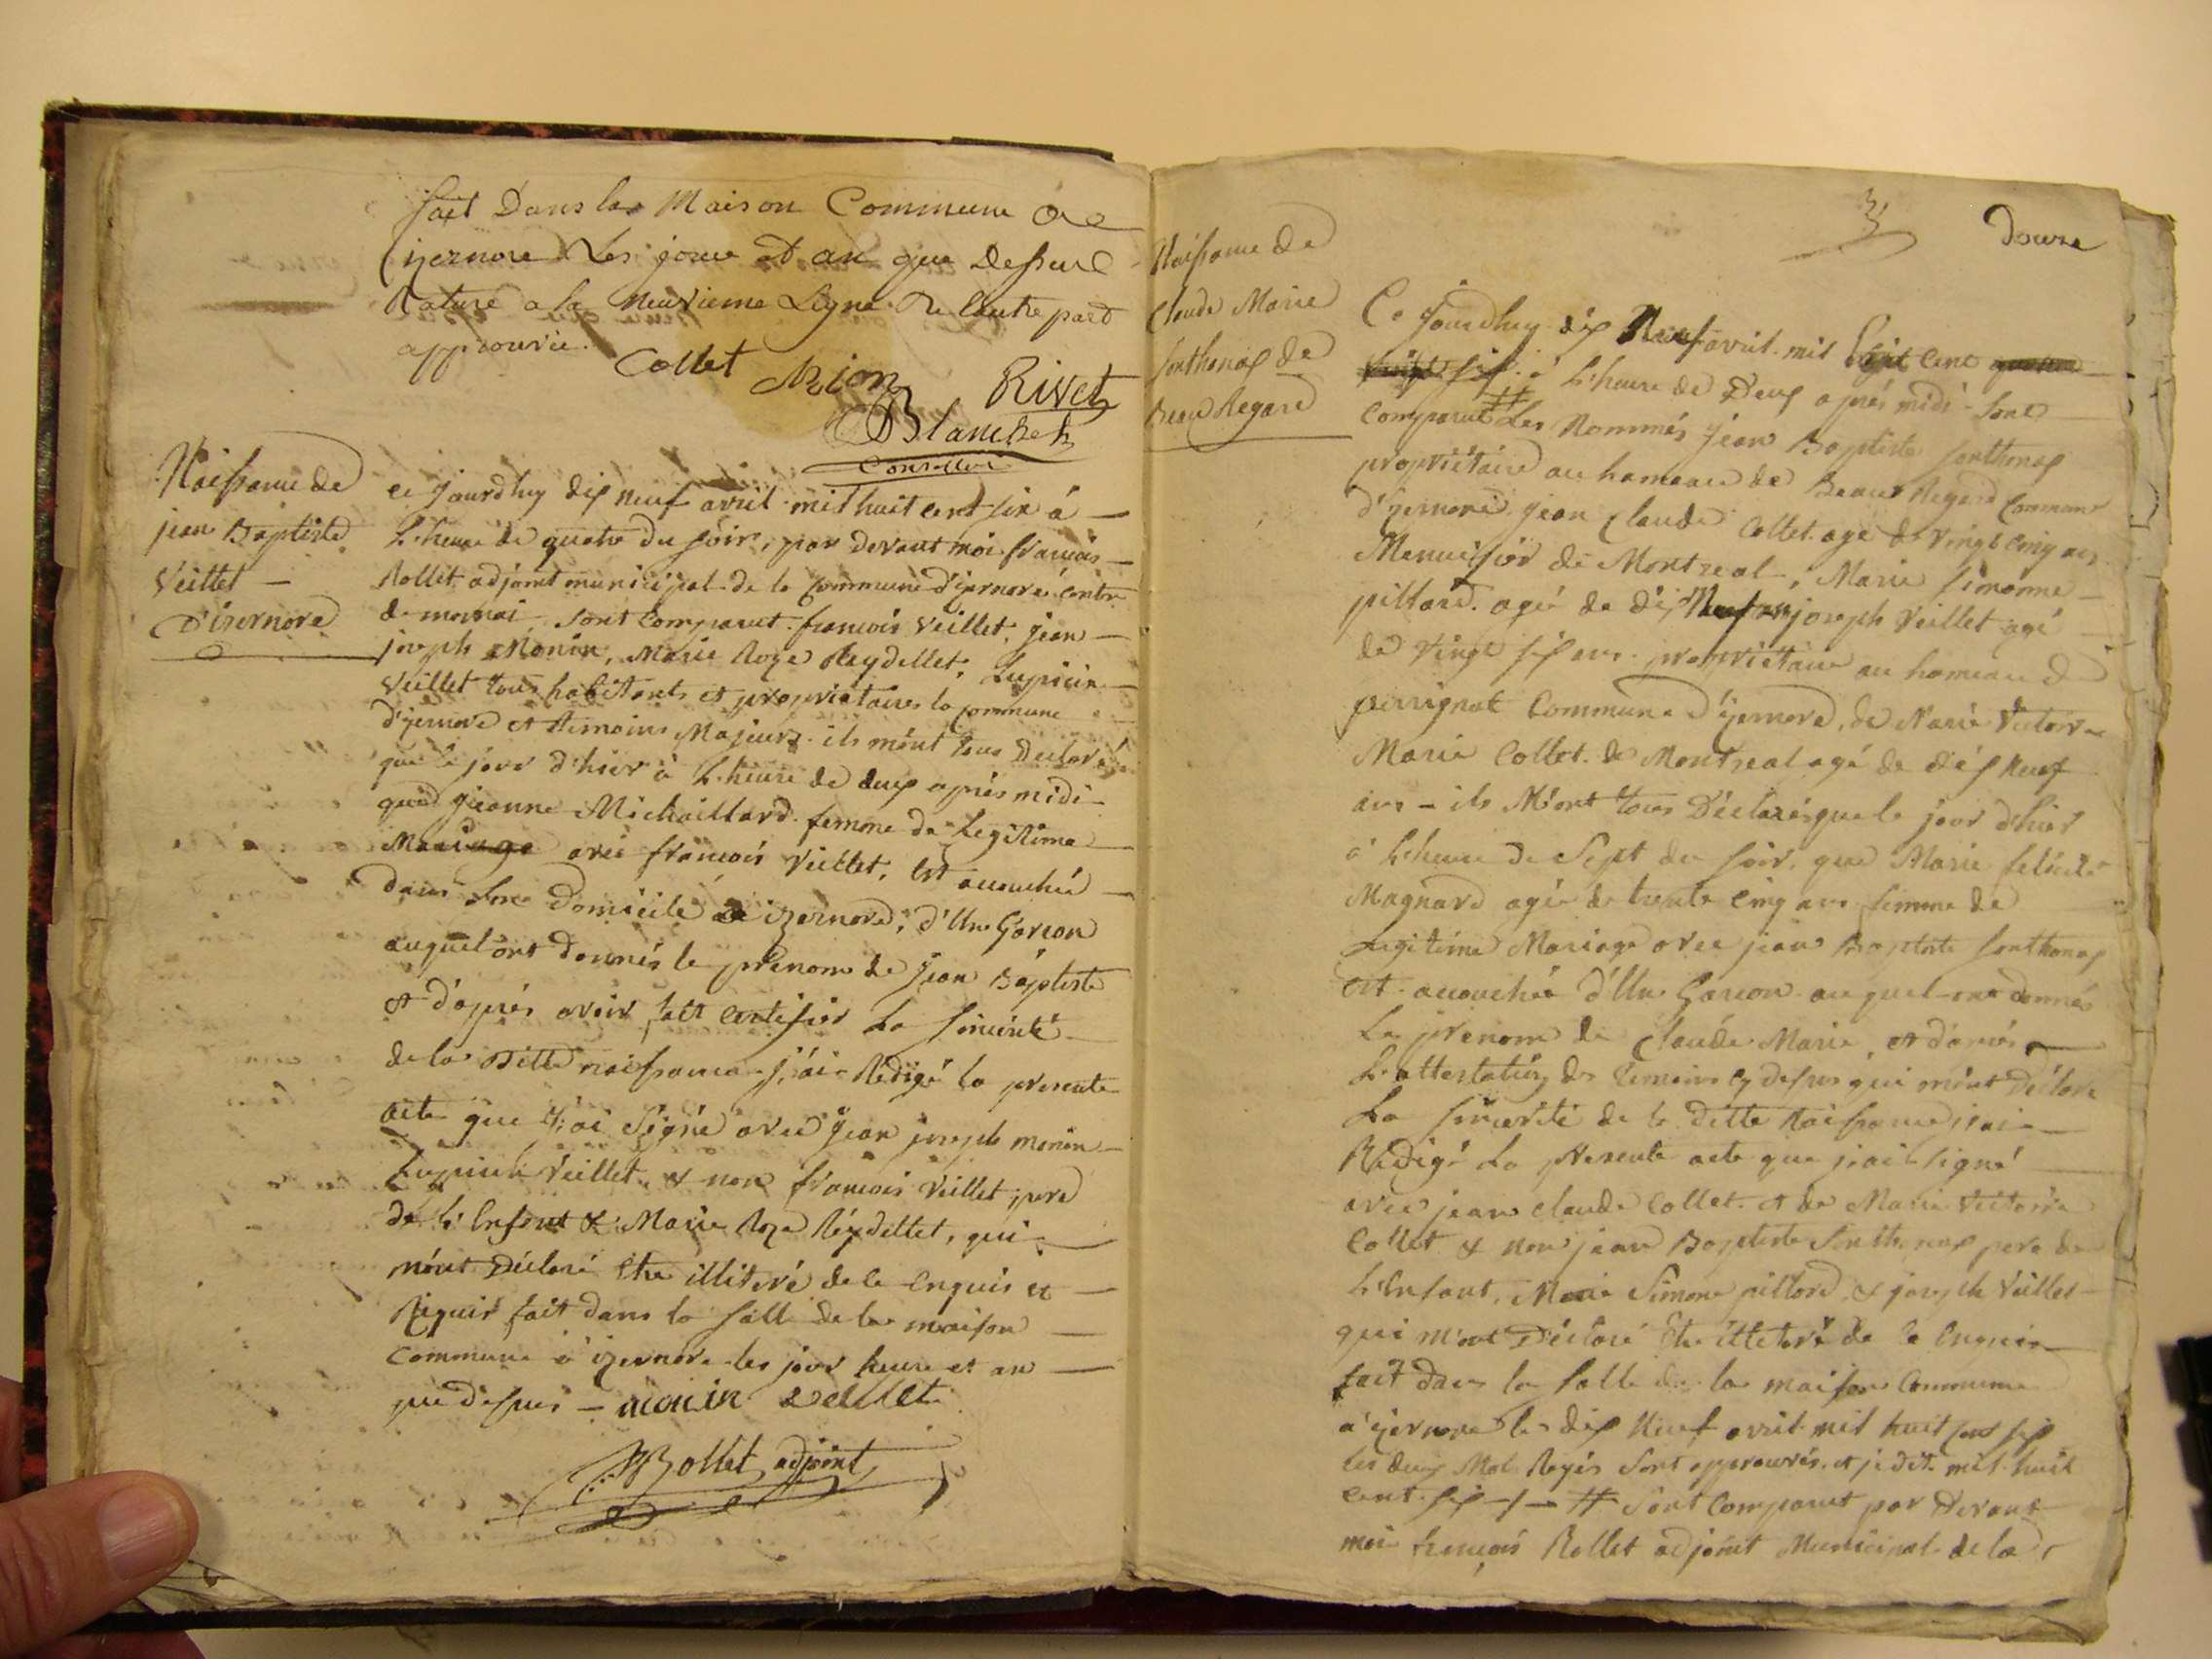 fait Dans la Maison Commune de
izernore Les jour et an que dessus
Rature a la neuvieme Ligne de lautre part
approuvée.
Collet Rivet
Blanchet
Conseller
Naissance de
jean Baptiste
Veillet —
D'izernore
ce jourdhuy dix neuf avril mil huit cent six à —
L'heure de quatre du soir, par devant moi francois —
Rollet adjoint municipal de la commune d'izernore contre
de mornai sont comparut francois Veillet, jean —
joseph Monin, Marie Roze Reydellet, Lupicin —
Veillet tous habitants et propriétaires la commune
d'izernore et temoins Majeurs. ils m'ont tous Declaré
que le jour d'hier à L'heure de deux aprés midi —
que jeanne Michaillard femme de Legitime —
Mariage avec francois Veillet, est accouchée —
dans son domicile de izernore, d'Un Garcon
auquel ont donnés le prénom de Jean Baptiste
et d'aprés avoir fait certifier La sincerité —
de la ditte naissance j'ai Redigé la presente
acte que j'ai Signé avec Jean joseph monin —
Lupicin Veillet & non francois Veillet pere
de L'Enfant & Marie Roze Reydellet, qui —
m'ont Déclaré Etre illiteré de ce enquis et —
Requis fait dans la salle de la maison —
Commune à izernore les jour heure et an —
que dessus — monin veillet
Rollet adjoint
douze
Naissance de
Claude Marie
Sonthonax de
Beau Regard
Ce jourdhuy dix Neuf avril mil huit Cent
à L'heure de Deux aprés midi sont
comparut # Les Nommés jean Baptiste Sonthonax
propriétaire au hameau de Beau Regard Commune
d'izernore, jean Claude Collet agé de vingt cinq ans
Menuisier de Montreal, Marie Simonne —
pillard agée de dix Neuf ans joseph Veillet agé
de Vingt six ans propriétaire au hameau de
perrignat Commune d'izernore, de Marie Victoire
Marie Collet de Montreal agé de dix Neuf
ans — ils M'ont tous Déclarés que le jour d'hier
à L'heure de Sept du soir, que Marie felicité
Magnard agée de trente cinq ans femme de
Legitime Mariage avec jean Baptiste Sonthonax
est accouchée d'Un Garcon auquel ont donnés
Le prenom de Claude Marie, et d'aprés —
L'attestation des temoins cy dessus qui m'ont Déclaré
La sincerité de la ditte Naissance j'ai —
Rédigé La presente acte que j'ai signé —
avec jean claude Collet et de Marie Victoire
Collet & non jean Baptiste Sonthonax pere de
L'Enfant, Marie Simone pillard, & joseph Veillet
qui m'ont Déclaré Etre illeteré de ce Enquis
fait dans la salle de la maison Commune
à izernore le dix Neuf avril mil huit cent six
les deux Mot Rayés sont approuvés, et je dit mil huit
cent six — / — # Sont Comparut par Devant
moi francois Rollet adjoint Municipal de la